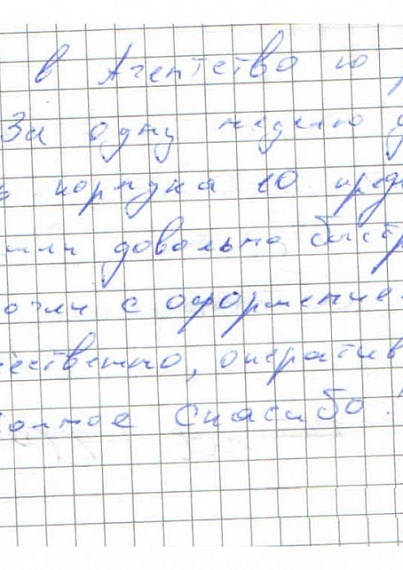 в Агентство ю
За одну неделю у
10 пред
довольно, быстр
с оформление
чественно, оператив
Спасибо.